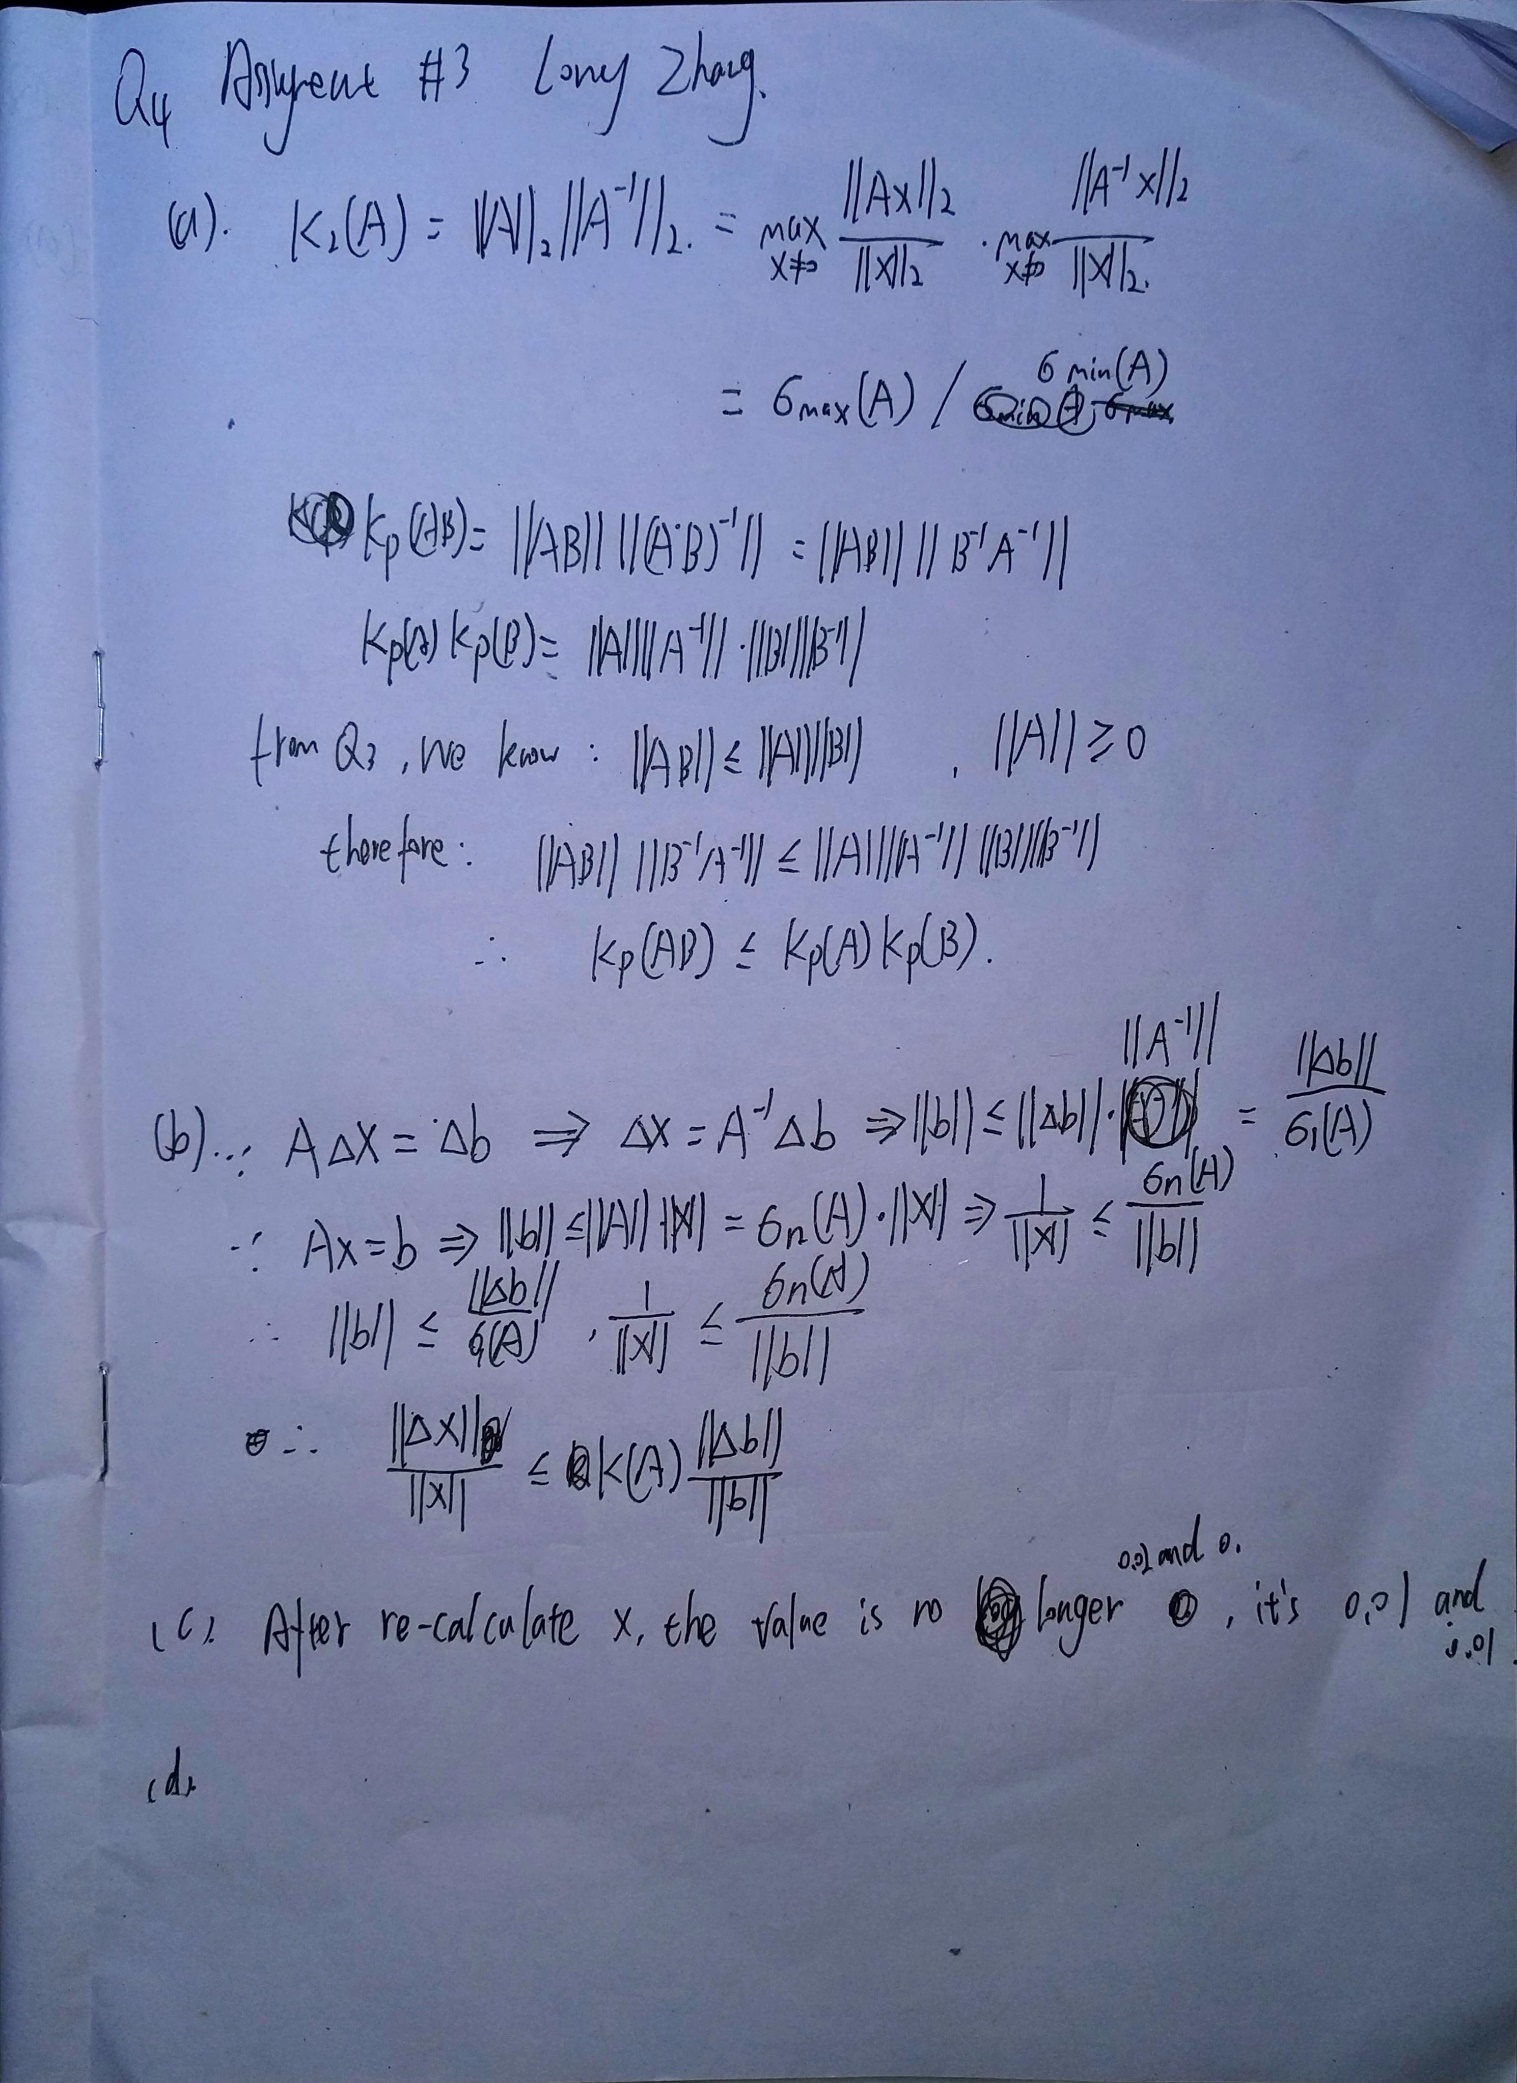 Q4 Assignment #3 Long Zhang.
(a). K₂(A) = ||A||₂ ||A⁻¹||₂. = max x≠0 ||Ax||₂ / ||x||₂ · max x≠0 ||A⁻¹x||₂ / ||x||₂.
= σmax(A) / σmin(A)
Kp(AB) = ||AB|| ||(A·B)⁻¹|| = ||AB|| ||B⁻¹A⁻¹||
Kp(A) Kp(B) = ||A|| ||A⁻¹|| · ||B|| ||B⁻¹||
from Q3, we know : ||AB|| ≤ ||A|| ||B|| , ||A|| ≥ 0
therefore : ||AB|| ||B⁻¹A⁻¹|| ≤ ||A|| ||A⁻¹|| ||B|| ||B⁻¹||
∴ Kp(AB) ≤ Kp(A) Kp(B).
(b). ∵ A∆x = ∆b ⇒ ∆x = A⁻¹∆b ⇒ ||b|| ≤ ||∆b|| · ||A⁻¹|| = ||∆b|| / σ₁(A)
∵ Ax = b ⇒ ||b|| ≤ ||A|| · ||x|| = σn(A) · ||x|| ⇒ 1 / ||x|| ≤ σn(A) / ||b||
∴ ||b|| ≤ ||∆b|| / σ₁(A) , 1 / ||x|| ≤ σn(A) / ||b||
∴ ||∆x|| / ||x|| ≤ K(A) ||∆b|| / ||b||
(c). After re-calculate x, the value is no longer 0.02 and 0. , it's 0.01 and 0.01.
(d).